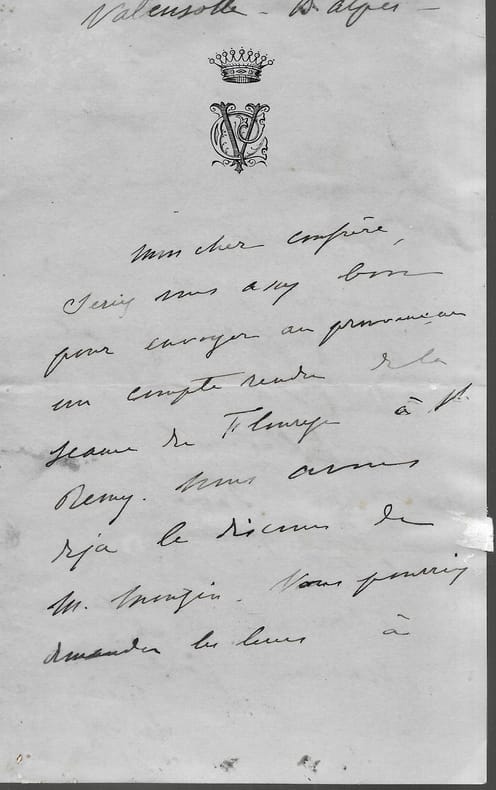 Valensole - B. alpes -
VC
Mon cher confrère,
Seriez vous assez bon
pour envoyer au provençau
un compte rendu de la
séance de Florege à St
Remy. Nous avons
déja le discours de
M. Mougin. Vous pourriez
demander les leurs à